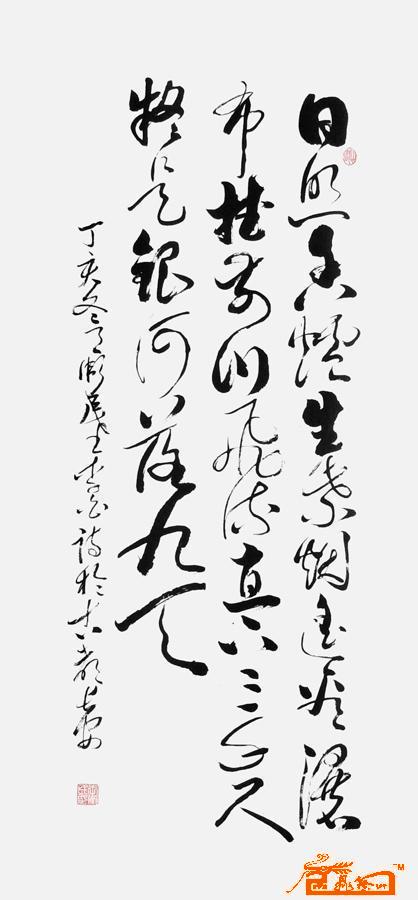 日照香炉生紫烟遥看瀑
布挂前川飞流直下三千尺
疑是银河落九天
丁亥冬月 李白诗于古都长安